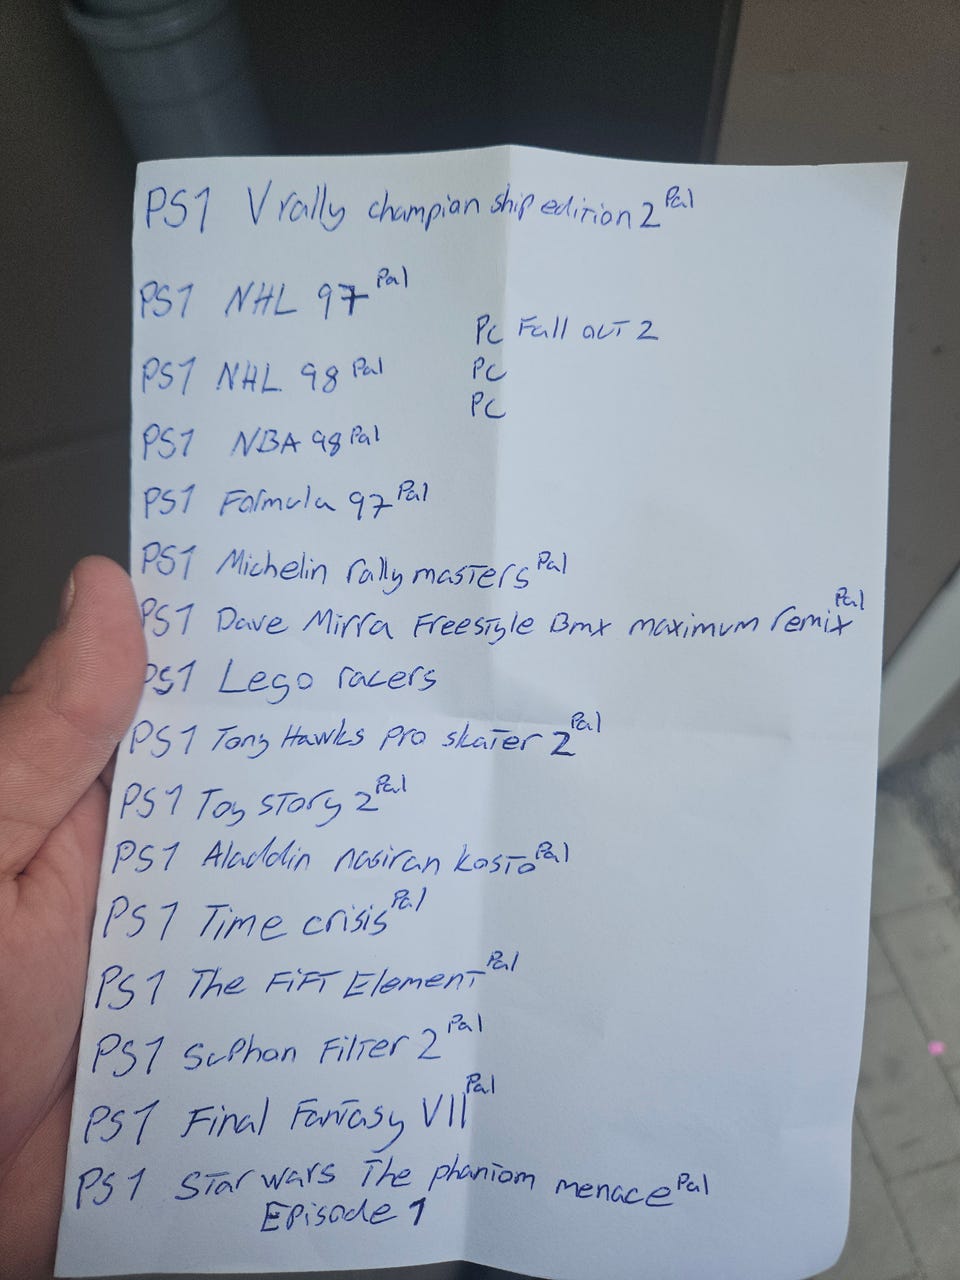 PS1 V rally champian ship edition 2 Pal
PS1 NHL 97 Pal
PC Fall out 2
PS1 NHL 98 Pal
PC
PC
PS1 NBA 98 Pal
PS1 Formula 97 Pal
PS1 Michelin rally masters Pal
PS1 Dave Mirra Freestyle Bmx maximum remix Pal
PS1 Lego racers
PS1 Tony Hawks pro skater 2 Pal
PS1 Toy story 2 Pal
PS1 Aladdin nasiran kosto Pal
PS1 Time crisis Pal
PS1 The FiFT Element Pal
PS1 Scphon Filter 2 Pal
PS1 Final Fantasy VII Pal
PS1 Star wars The phantom menace Pal
Episode 1